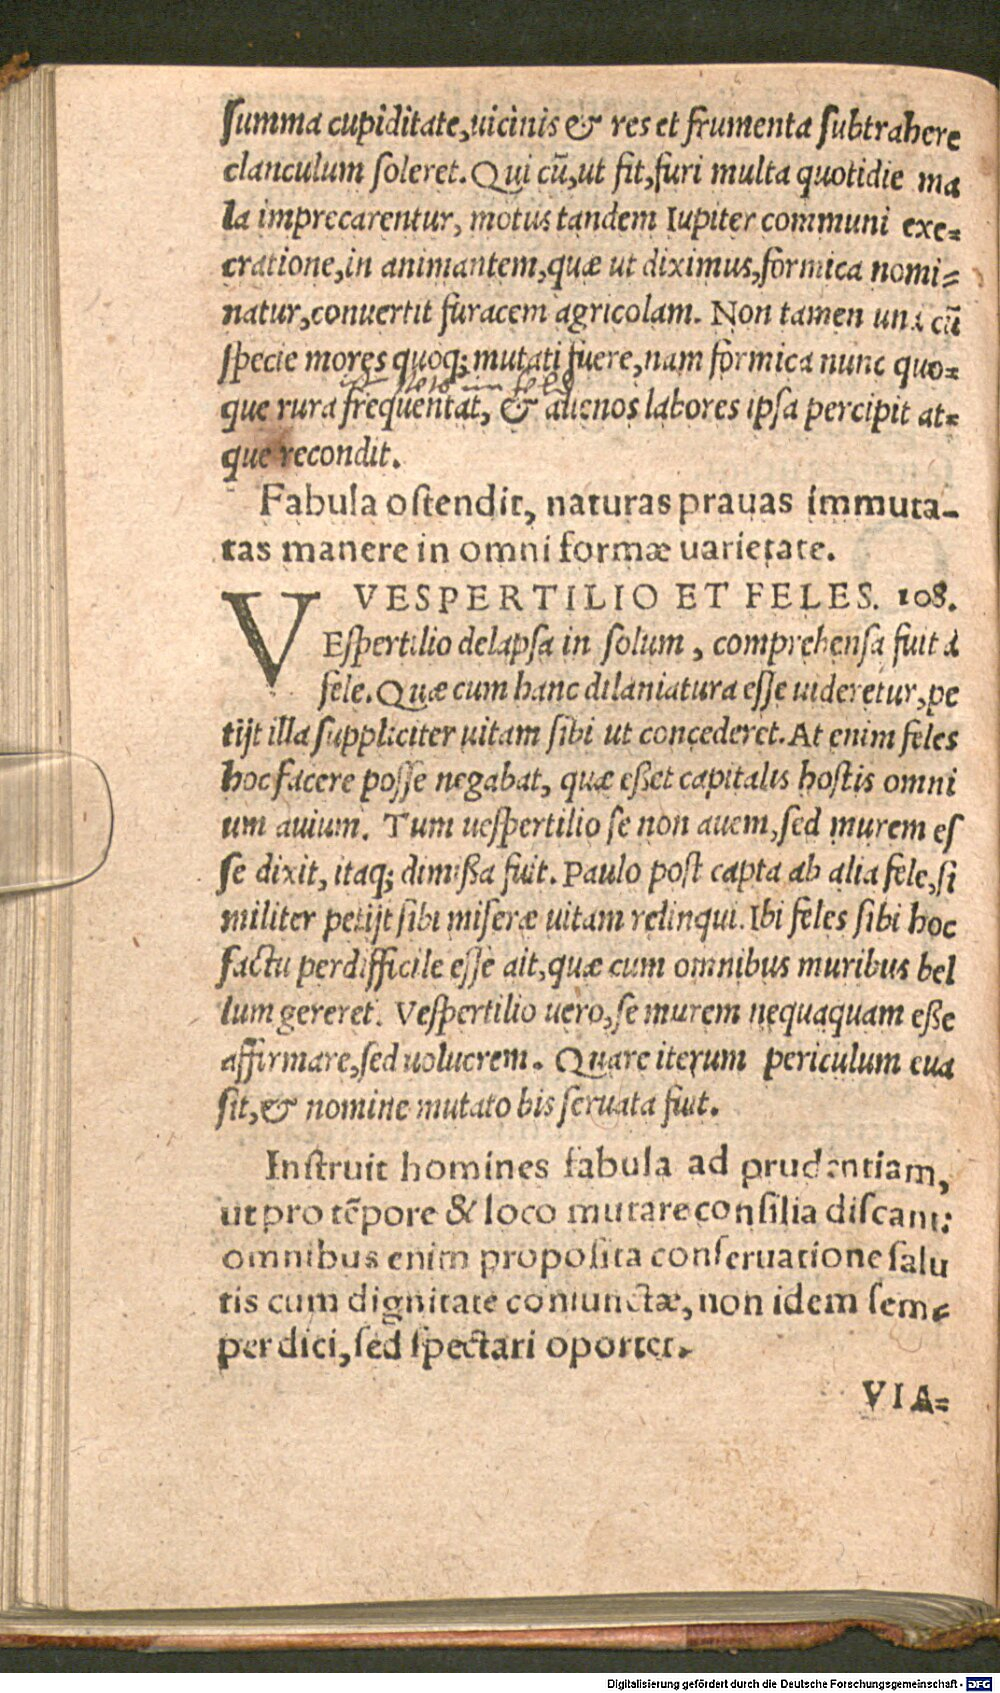 summa cupiditate, uicinis & res et frumenta subtrahere
clanculum soleret. Qui cū, ut fit, furi multa quotidie ma
la imprecarentur, motus tandem Iupiter communi exe=
cratione, in animantem, quæ ut diximus, formica nomi=
natur, conuertit furacem agricolam. Non tamen una cū
specie mores quoq; mutati fuere, nam formica nunc quo=
que rura frequentat, & alienos labores ipsa percipit at=
que recondit.
Fabula ostendit, naturas prauas immuta-
tas manere in omni formæ uarietate.
VESPERTILIO ET FELES. 108.
VEspertilio delapsa in solum, comprehensa fuit à
fele. Quæ cum hanc dilaniatura esse uideretur, pe
tijt illa suppliciter uitam sibi ut concederet. At enim feles
hoc facere posse negabat, quæ eßet capitalis hostis omni
um auium. Tum uespertilio se non auem, sed murem es
se dixit, itaq; dimißa fuit. Paulo post capta ab alia fele, si
militer petijt sibi miseræ uitam relinqui. Ibi feles sibi hoc
factu perdifficile esse ait, quæ cum omnibus muribus bel
lum gereret. Vespertilio uero, se murem nequaquam eße
affirmare, sed uolucrem. Quare iterum periculum eua
sit, & nomine mutato bis seruata fuit.
Instruit homines fabula ad prudentiam,
ut pro tēpore & loco mutare consilia discant:
omnibus enim proposita conseruatione salu
tis cum dignitate coniunctæ, non idem sem=
per dici, sed spectari oportet.
VIA=
Digitalisierung gefördert durch die Deutsche Forschungsgemeinschaft - DFG